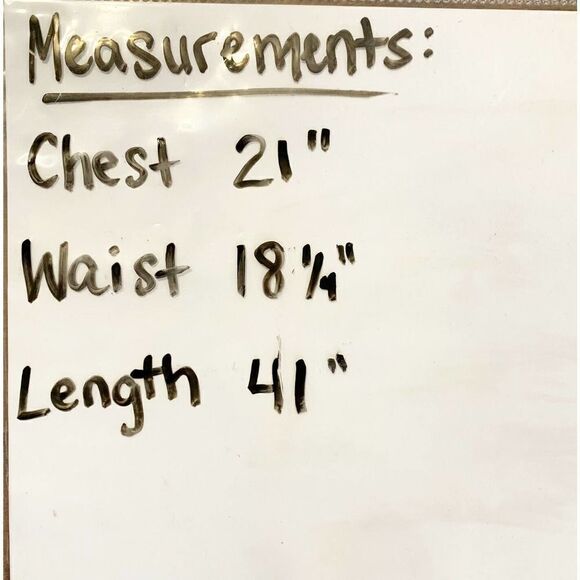 Measurements:
Chest 21"
Waist 18 1/4"
Length 41"